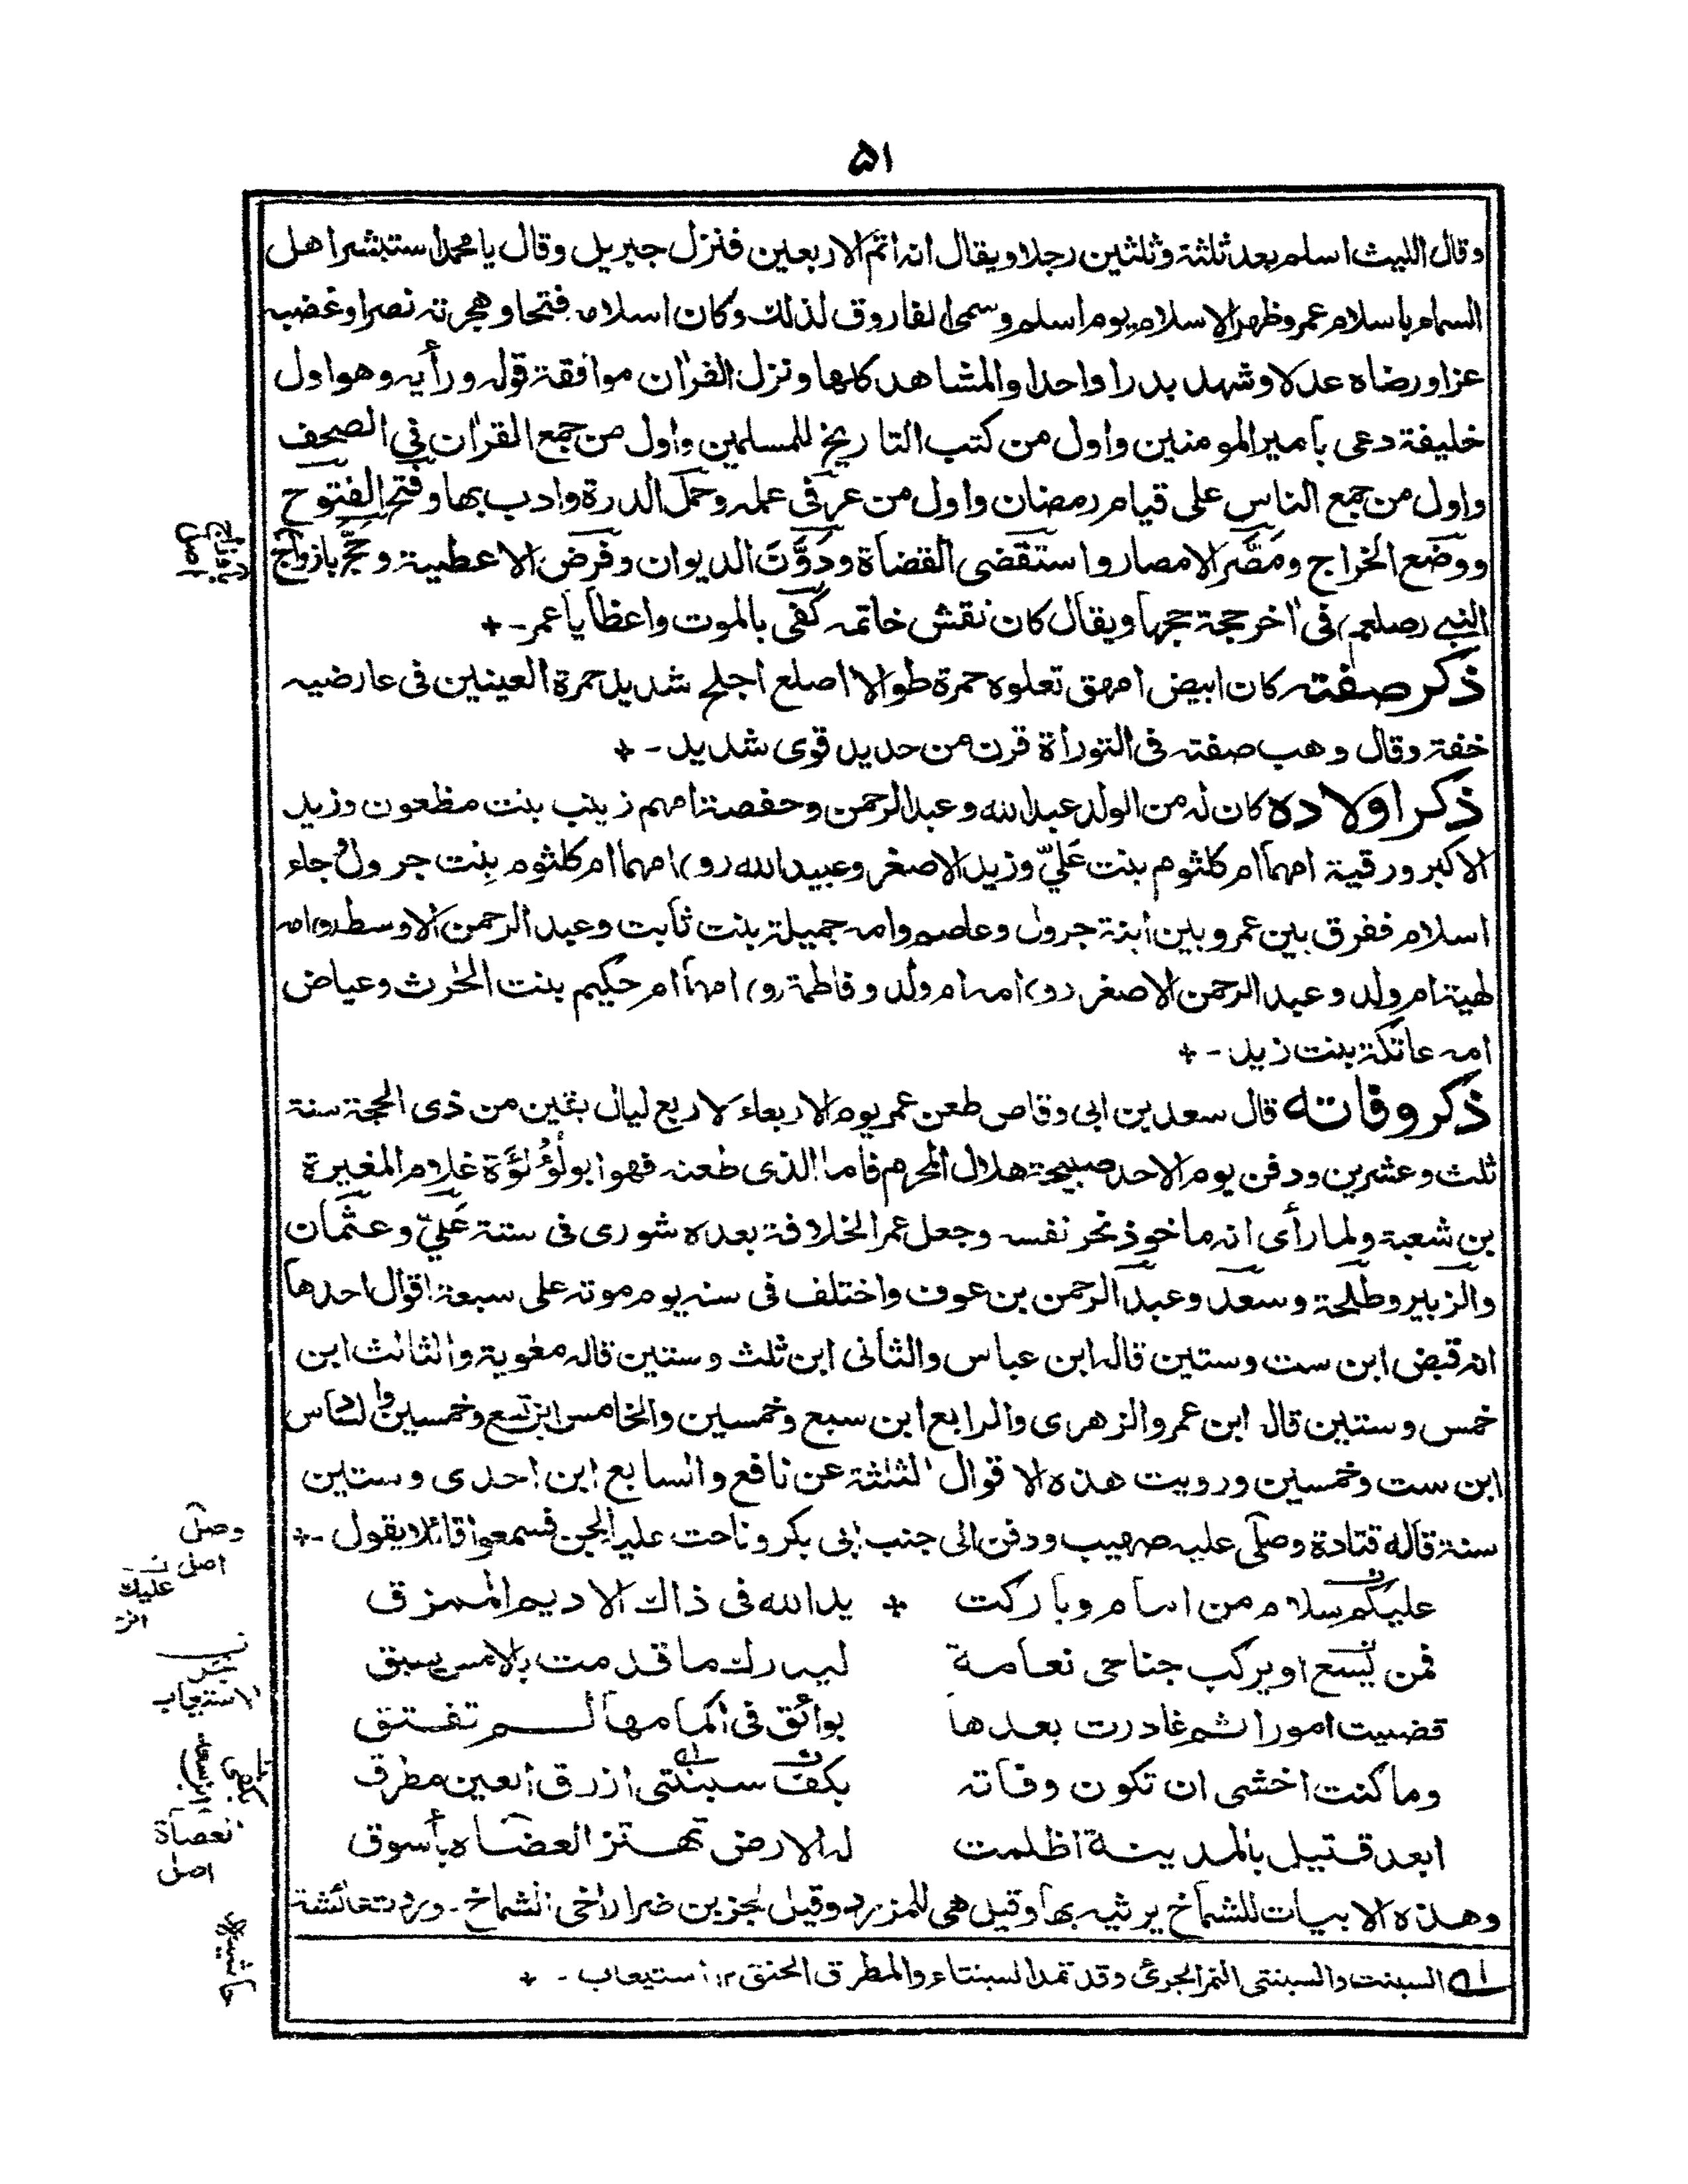 ۵۱
وقال الليث اسلم بعد ثلثة وثلثين رجلا ويقال انه اتم الاربعين فنزل جبريل وقال يا محمد استبشر اهل
السماء باسلام عمر وظهر الاسلام يوم اسلم وسمى الفاروق لذلك وكان اسلامه فتحا وهجرته نصرا وغضبه
عزا ورضاه عدلا وشهد بدرا واحدا والمشاهد كلها ونزل القرأن موافقة قوله ورأيه وهو اول
خليفة دعى بامير المومنين واول من كتب التاريخ للمسلمين واول من جمع القران في الصحف
واول من جمع الناس على قيام رمضان واول من عس في عمله وحمل الدرة وادب بها وفتح الفتوح
ووضع الخراج ومَصَّر الامصار واستقضى القضاة ودَوَّنَ الديوان وفرض الاعطية وحَجَّ بازواج
النبي (صلعم) في اخر حجة حجها ويقال كان نقش خاتمه كفى بالموت واعظا يا عمر -
ذكر صفته كان ابيض امهق تعلوه حمرة طوالا اصلع اجلح شديد حمرة العينين في عارضيه
خفة وقال وهب صفته في التوراة قرن من حديد قوى شديد -
ذكر اولاده كان له من الولد عبد الله وعبد الرحمن وحفصة امهم زينب بنت مظعون وزيد
الاكبر ورقية امهما ام كلثوم بنت عَليّ وزيد الاصغر وعبيد الله (و) امهما ام كلثوم بنت جرول وجاء
اسلام ففرق بين عمر وبين ابنة جرول وعاصم وامه جميلة بنت ثابت وعبد الرحمن الاوسط (و) امه
لهية ام ولد وعبد الرحمن الاصغر (و) امه ام ولد وفاطمة (و) امها ام حكيم بنت الحٰرث وعياض
امه عاتكة بنت زيد -
ذكر وفاته قال سعد بن ابى وقاص طعن عمر يوم الاربعاء لاربع ليال بقين من ذى الحجة سنة
ثلث وعشرين ودفن يوم الاحد صبيحة هلال المحرم فاما الذى طعنه فهو ابو لؤلؤة غلام المغيرة
بن شعبة ولما رأى انه ماخوذ نحر نفسه وجعل عمر الخلافة بعده شورى فى ستة عَليّ وعثمان
والزبير وطلحة وسعد وعبد الرحمن بن عوف واختلف فى سنه يوم موته على سبعة اقوال احدها
انه قبض ابن ست وستين قاله ابن عباس والثانى ابن ثلث وستين قاله معوية والثالث ابن
خمس وستين قاله ابن عمر والزهرى والرابع ابن سبع وخمسين والخامس ابن تسع وخمسين والسادس
ابن ست وخمسين ورويت هذه الاقوال الثلثة عن نافع والسابع ابن احدى وستين
سنة قاله قتادة وصلى عليه صهيب ودفن الى جنب ابى بكر وناحت عليه الجن فسمعوا قائلا يقول -
عليكم سلام من امام وباركت يد الله فى ذاك الاديم الممزق
فمن يسع او يركب جناحى نعامة ليدرك ما قدمت بالامس يسبق
قضيت امورا ثم غادرت بعدها بوائق فى اكمامها لم تفتق
وما كنت اخشى ان تكون وفاته بكف سبنتى ازرق العين مطرق
ابعد قتيل بالمدينة اظلمت له الارض تهتز العضاه بأسوق
وهذه الابيات للشماخ يرثيه بها وقيل هى للمزرد وقيل لجزء بن ضرار اخى الشماخ - وروت عائشة
السبنت والسبنتى النمر الجرئ وقد تمد السبنتاء والمطرق الحنق ۱۲ استيعاب -
وصل
اصل
عليك
الاستيعاب
ابن سعد
العصاة
اصل
حاشية